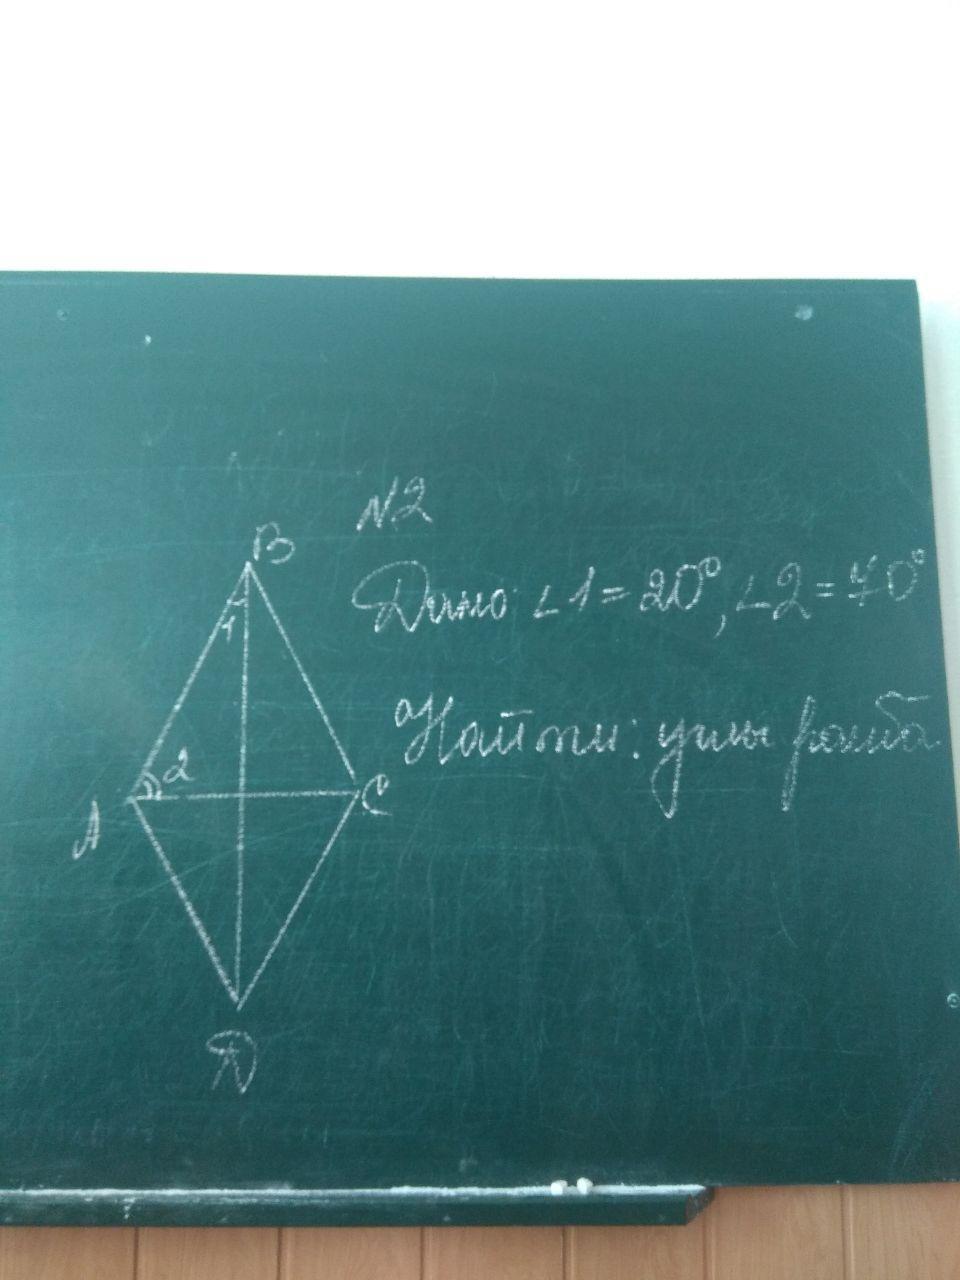 N2
B
Дано: ∠1=20°, ∠2=70°
1
Найти: углы ромба
2
A
C
D